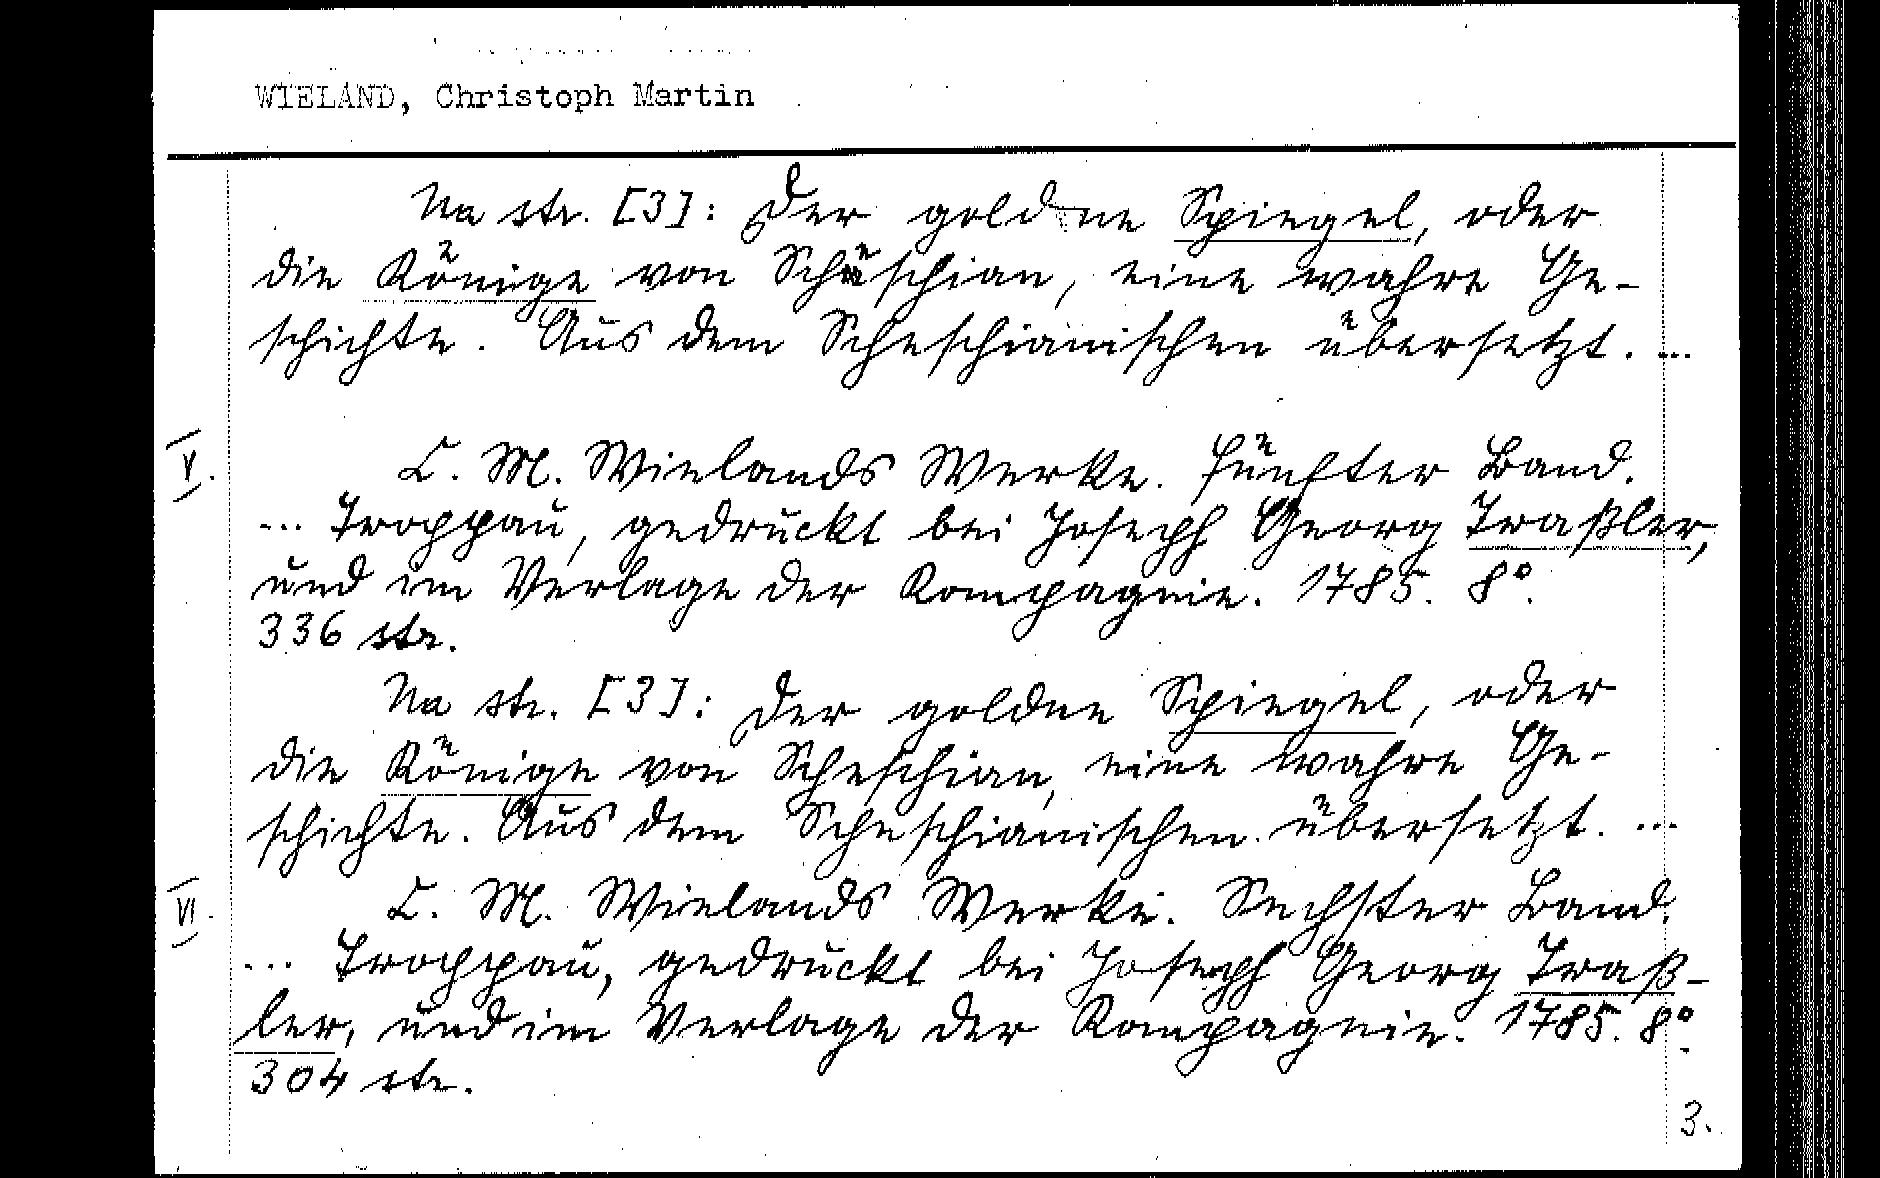 WIELAND, Christoph Martin
Na str. [3]: Der goldne Spiegel, oder
die Könige von Schäschian, eine wahre Ge-
schichte. Aus dem Scheschianischen übersetzt. ...
V.
C. M. Wielands Werke. Fünfter Band.
... Troppau, gedruckt bei Joseph Georg Traßler,
und im Verlage der Kompagnie. 1785. 8°.
336 str.
Na str. [3]: Der goldne Spiegel, oder
die Könige von Scheschian, eine wahre Ge-
schichte. Aus dem Scheschianischen übersetzt. ...
VI.
C. M. Wielands Werke. Sechster Band.
... Troppau, gedruckt bei Joseph Georg Traß-
ler, und im Verlage der Kompagnie. 1785. 8°.
304 str.
3.